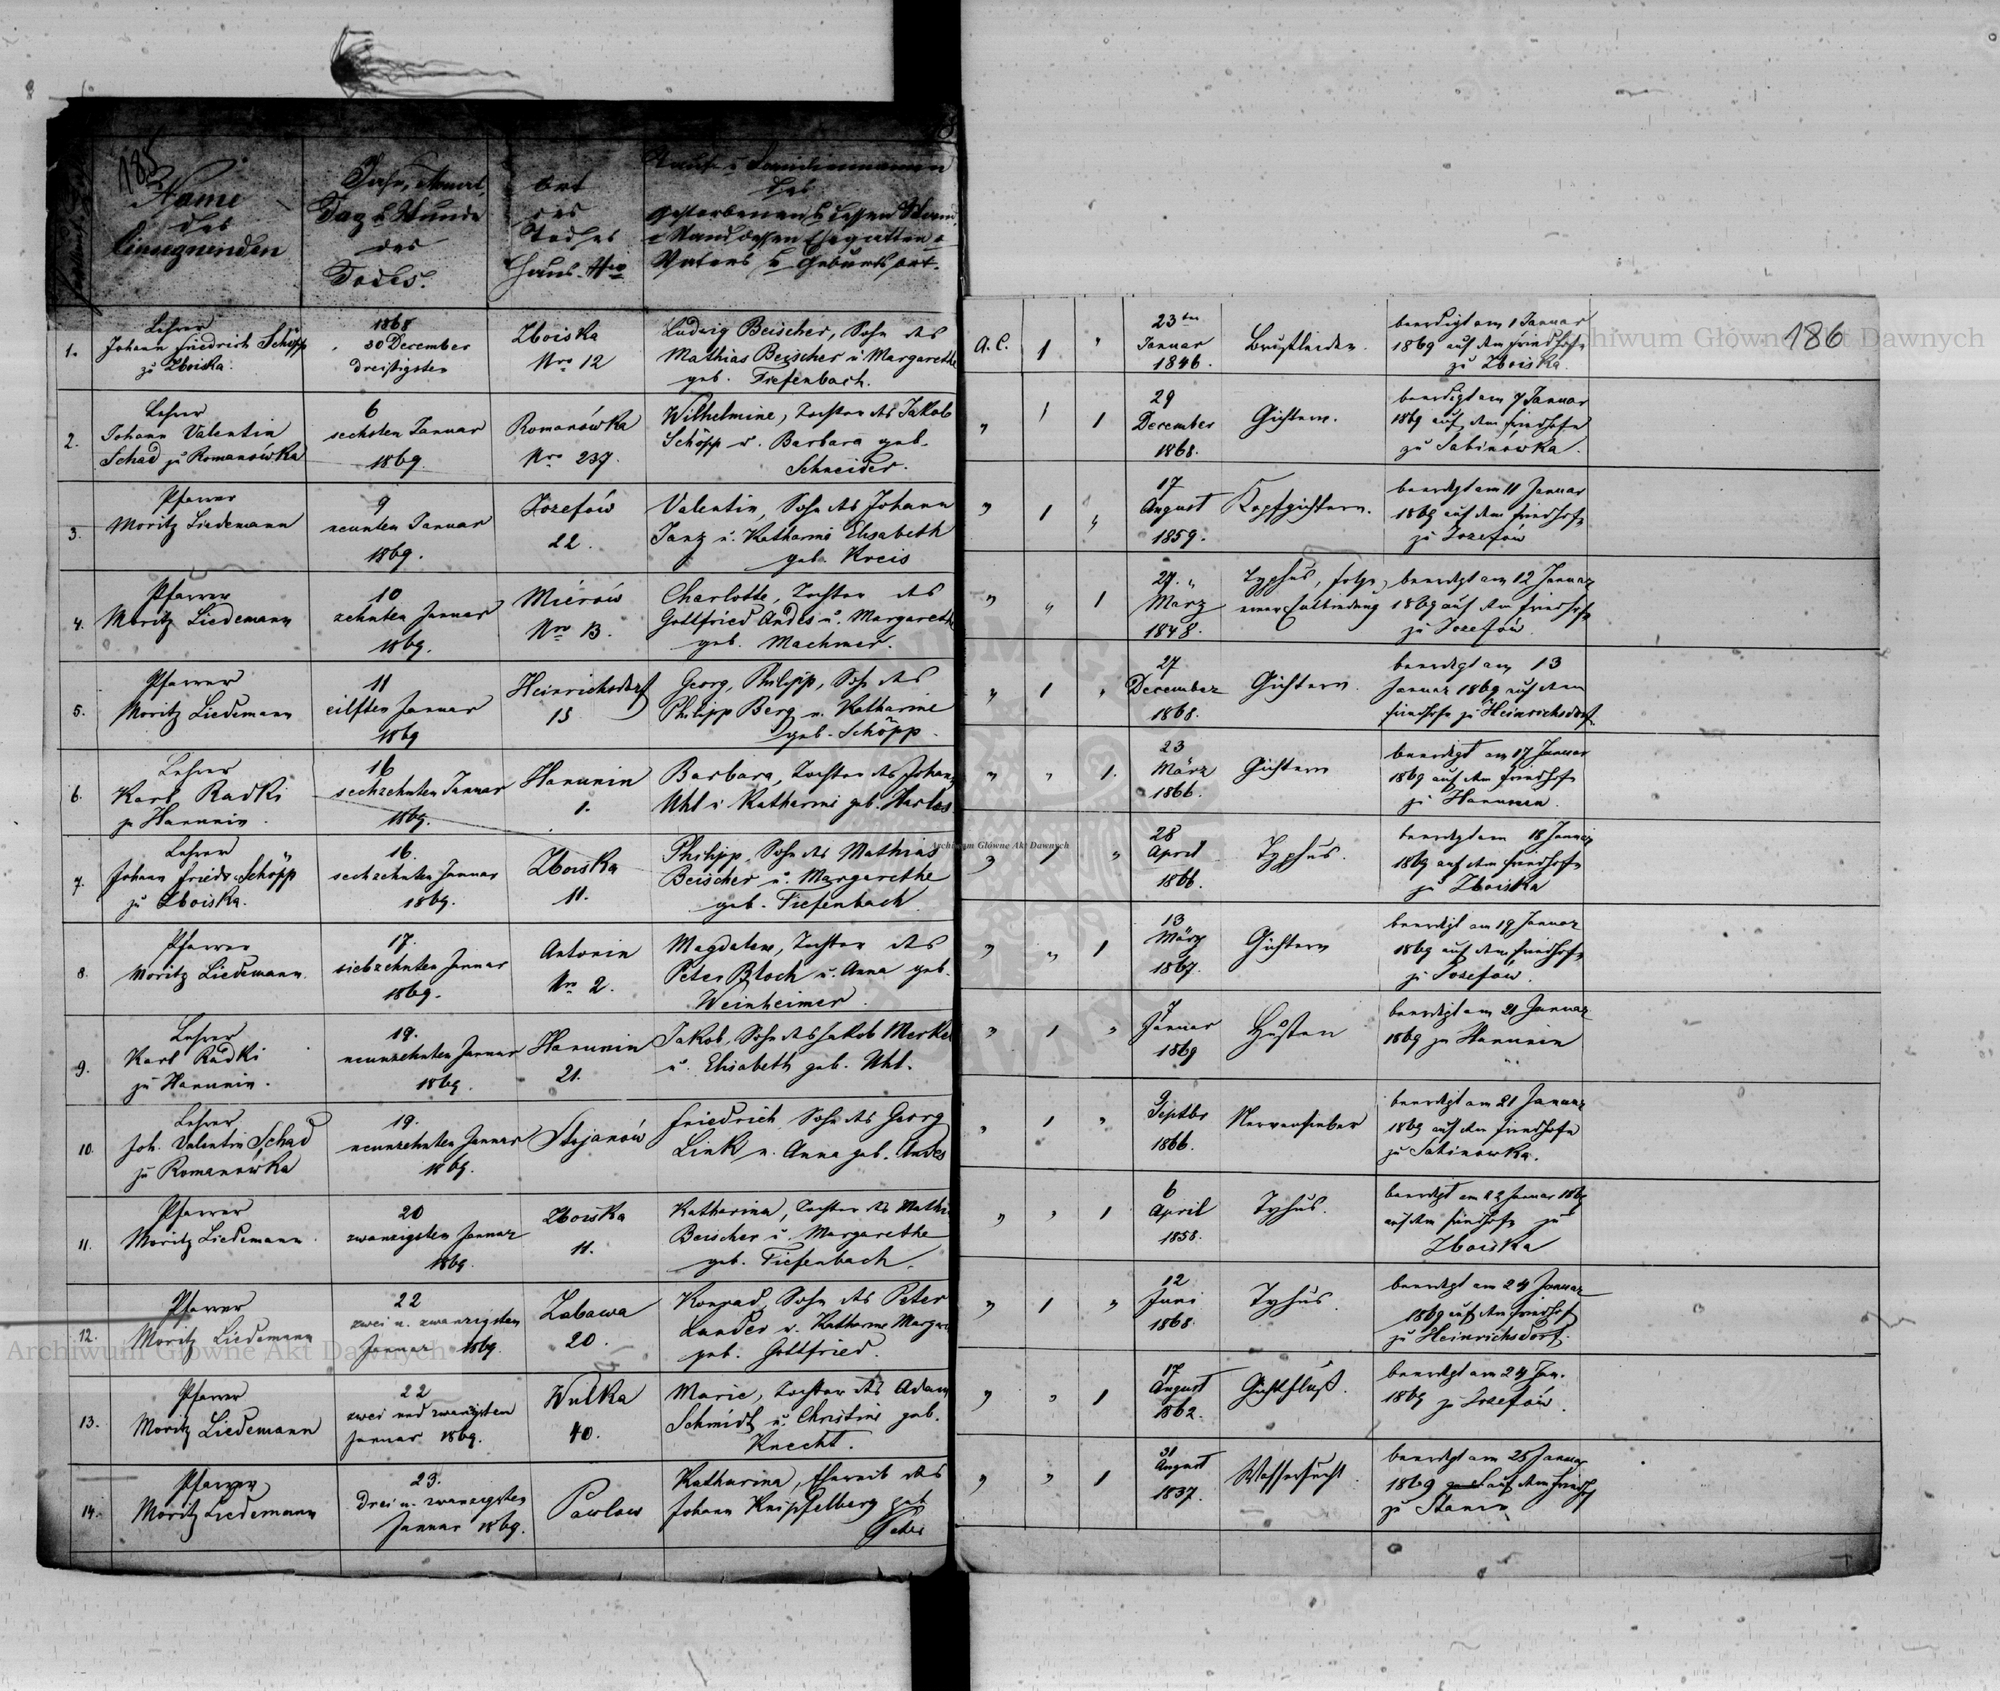 185
Name
des
Einsegnenden
Jahr, Monat,
Tag u Stunde
des
Todes.
Ort
des
Todes
Haus Nro
Tauf u Familiennamen
des
Gestorbenen
Vaters u Geburtsort.
186
1.
Lehrer
Johann Friedrich Schöpp
zu Zboiska.
1868
30 December
dreißigsten
Zboiska
Nro 12
Ludwig Beischer, Sohn des
Mathias Beischer u Margarethe
geb. Tiefenbach.
A.C. 1 "
23ten
Januar
1846.
Brustleiden.
beerdigt am 1 Januar
1869 auf dem Friedhofe
zu Zboiska.
2.
Lehrer
Johann Valentin
Schad zu Romanówka
6
sechsten Januar
1869.
Romanówka
Nro 237.
Wilhelmine, Tochter des Jakob
Schöpp u. Barbara geb.
Schneider.
" 1 1
29
December
1868.
Gichtern.
beerdigt am 7 Januar
1869 auf dem Friedhofe
zu Sabinówka.
3.
Pfarrer
Moritz Liedemann
9
neunten Januar
1869.
Józefów
22.
Valentin, Sohn des Johann
Janz u. Katharine Elisabeth
geb. Kreis
" 1 "
17
August
1859.
Kopfgichtern.
beerdigt am 11 Januar
1869 auf dem Friedhofe
zu Jozefów
4.
Pfarrer
Moritz Liedemann
10
zehnten Januar
1869.
Miérów
Nro 13.
Charlotte, Tochter des
Gottfried Andes u. Margareth
geb. Machmer.
" " 1
27. "
März
1848.
Typhus, folge
einer Entbindung
beerdigt am 12 Januar
1869 auf dem Friedhofe
zu Jozefów.
5.
Pfarrer
Moritz Liedemann
11
eilften Januar
1869
Heinrichsdorf
15
Georg, Philipp, Sohn des
Philipp Berg u. Katharine
geb. Schöpp
" 1 "
27
December
1868.
Gichtern.
beerdigt am 13
Januar 1869 auf dem
Friedhofe zu Heinrichsdorf.
6.
Lehrer
Karl Radki
zu Hanunin.
16
sechzehnten Januar
1869.
Hanunin
1.
Barbara, Tochter des Johann
Uhl u Katharine geb. Harlos
" " 1.
23
März
1866.
Gichtern
beerdigt am 17 Januar
1869 auf dem Friedhofe
zu Hanunin.
7.
Lehrer
Johann Friedr. Schöpp
zu Zboiska.
16.
sechzehnten Januar
1869.
Zboiska
11.
Philipp, Sohn des Mathias
Beischer u. Margarethe
geb. Tiefenbach
" 1 "
28
April
1866.
Typhus.
beerdigt am 18 Januar
1869 auf dem Friedhofe
zu Zboiska
8.
Pfarrer
Moritz Liedemann.
17.
siebzehnten Januar
1869.
Antonin
Nro 2.
Magdalene, Tochter des
Peter Bloch u. Anna geb.
Weinheimer.
" " 1
13
März
1867.
Gichtern
beerdigt am 19 Januar
1869 auf dem Friedhofe
zu Jozefów.
9.
Lehrer
Karl Radki
zu Hanunin.
19.
neunzehnten Januar
1869.
Hanunin
21.
Jakob, Sohn des Jakob Merkel
u. Elisabeth geb. Uhl.
" 1 "
Januar
1869
Husten
beerdigt am 21 Januar
1869 zu Hanunin
10.
Lehrer
Joh. Valentin Schad
zu Romanówka
19.
neunzehnten Januar
1869.
Stojanów
Friedrich Sohn des Georg
Link u. Anna geb. Andes
" 1 "
9
Septbr
1866.
Nervenfieber
beerdigt am 21 Januar
1869 auf dem Friedhofe
zu Sabinowka.
11.
Pfarrer
Moritz Liedemann.
20
zwanzigsten Januar
1869.
Zboiska
11.
Katharina, Tochter des Mathi
Beischer u. Margarethe
geb. Tiefenbach.
" " 1
6
April
1858.
Tyhus.
beerdigt am 22 Januar 1869
auf dem Friedhofe zu
Zboiska
12.
Pfarrer
Moritz Liedemann
22
zwei u. zwanzigsten
Januar 1869.
Zabawa
20.
Konrad, Sohn des Peter
Lander u. Katharine Margar
geb. Gottfried.
" 1 "
12
Juni
1868.
Tyhus.
beerdigt am 24 Januar
1869 auf dem Friedhof
zu Heinrichsdorf.
13.
Pfarrer
Moritz Liedemann
22
zwei und zwanzigsten
Januar 1869.
Wulka
40.
Marie, Tochter des Adam
Schmidt u. Christine geb.
Knecht.
" " 1
17
August
1862.
Gichtfluß.
beerdigt am 24 Jan.
1869 zu Jozefów.
14.
Pfarrer
Moritz Liedemann
23.
Drei u. zwanzigsten
Januar 1869.
Pawlow
Katharina, Eheweib des
Johann Knipfelberg geb
" " 1
31
August
1837.
Wassersucht.
beerdigt am 25 Januar
1869 auf dem Friedhof
zu Stanin
Archiwum Główne Akt Dawnych
Archiwum Główne Akt Dawnych
Archiwum Główne Akt Dawnych